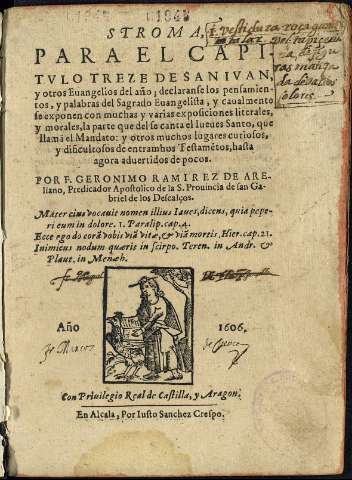 STROMA,
PARA EL CAPI
TVLO TREZE DE SAN IVAN,
y otros Euangelios del año; declaranse los pensamien-
tos, y palabras del Sagrado Euangelista, y casualmente
se exponen con muchas y varias exposiciones literales,
y morales, la parte que del se canta el Iueues Santo, que
llamā el Mandato: y otros muchos lugares curiosos,
y dificultosos de entrambos Testamētos, hasta
agora aduertidos de pocos.
POR F. GERONIMO RAMIREZ DE ARE-
llano, Predicador Apostolico de la S. Prouincia de san Ga-
briel de los Descalços.
Mater eius vocauit nomen illius Iaues, dicens, quia pepe-
ri eum in dolore. 1. Paralip. cap. 4.
Ecce ego do corā vobis viā vitæ, & viā mortis, Hier. cap. 21.
Inimicus nodum quæris in scirpo. Teren. in Andr. &
Plaut. in Menæh.
Año 1606.
Con Priuilegio Real de Castilla, y Aragon.
En Alcala, Por Iusto Sanchez Crespo.